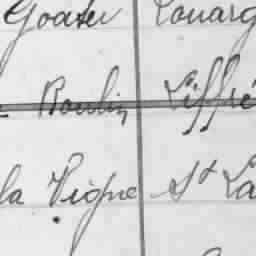 Goater Louarg
Boulin Liffré
la Vigne St La